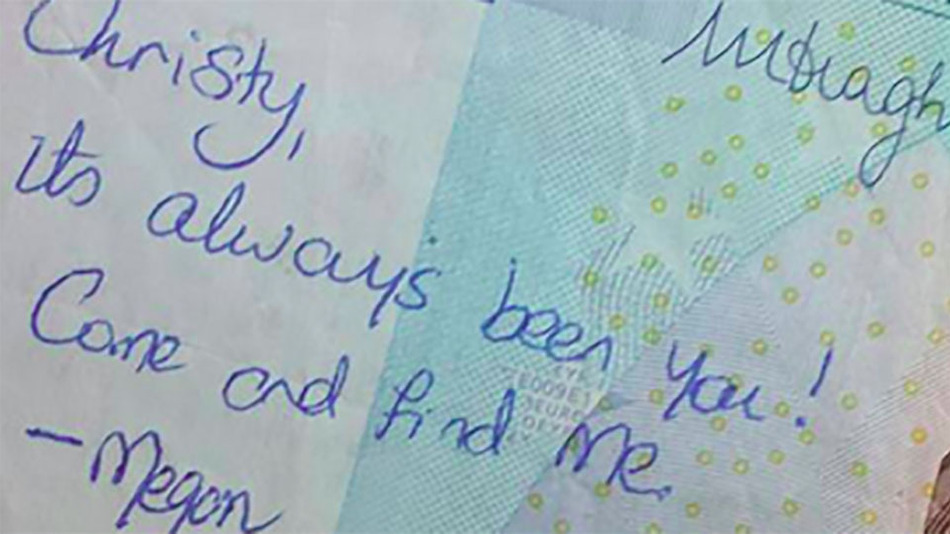 Christy,
Its always been you!
Come and find me.
- Megan